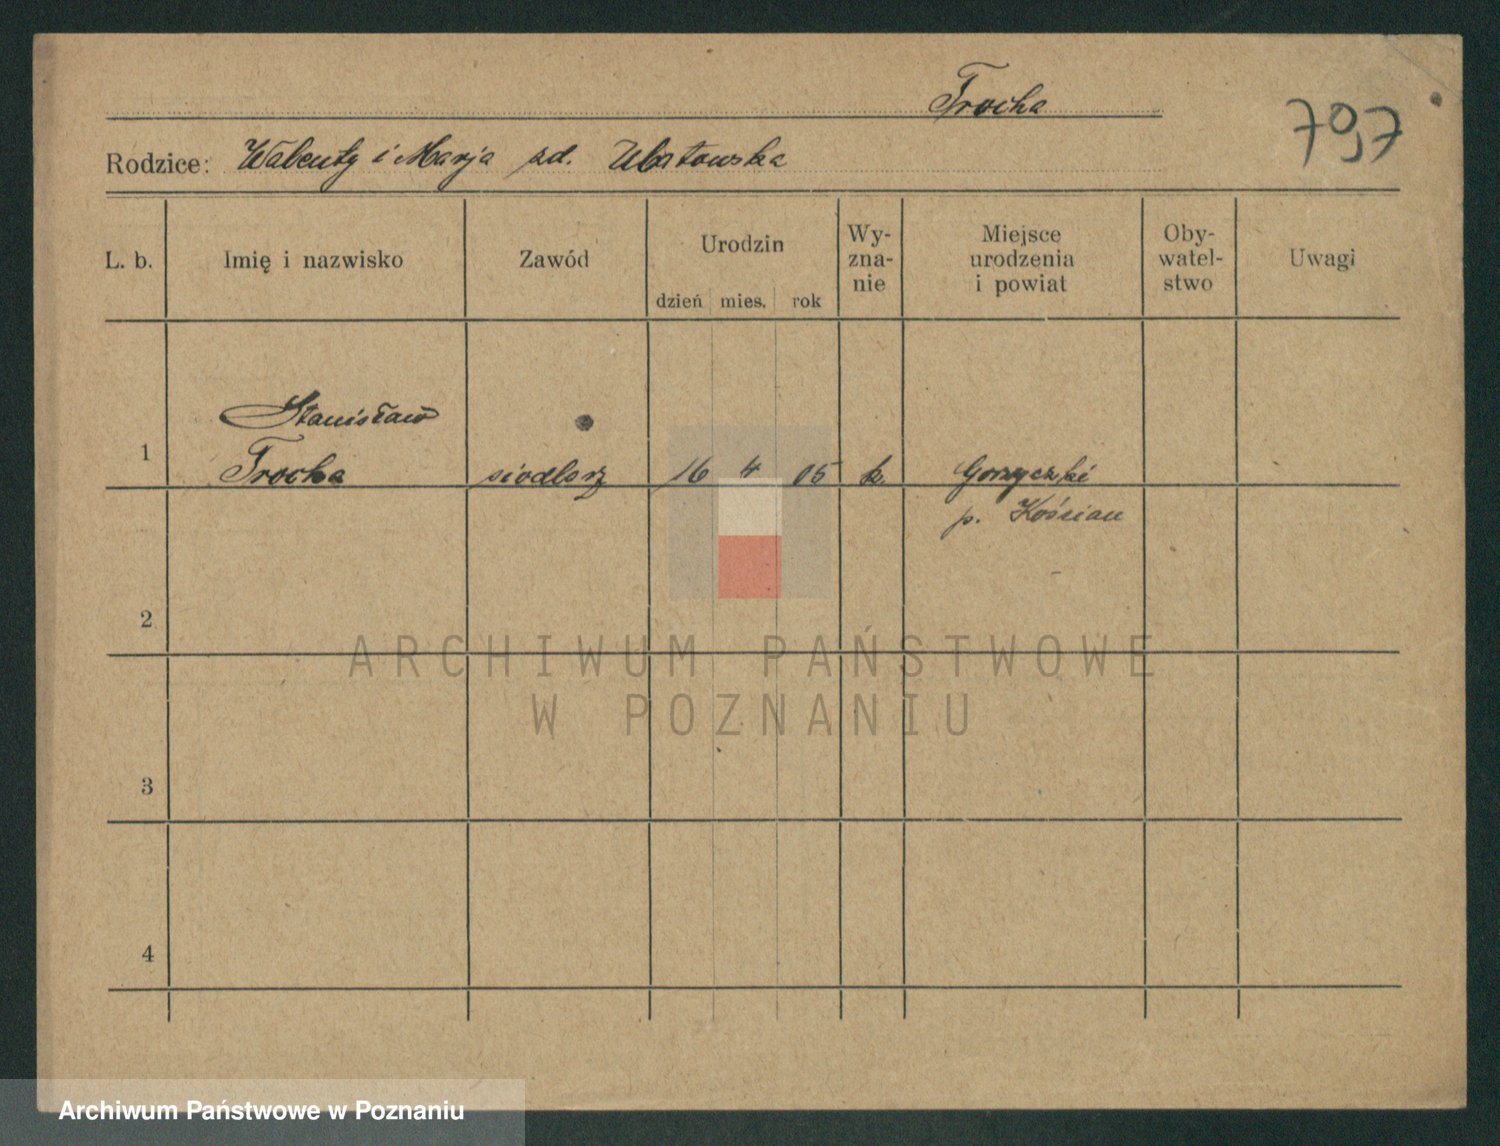 Trocha
7057
Rodzice: Walenty i Marja zd.
L. b.
Imię i nazwisko
Zawód
Urodzin
dzień mies. rok
Wy-
zna-
nie
Miejsce
urodzenia
i powiat
Oby-
watel-
stwo
Uwagi
1
Stanisław
Trocha
siodlarz
16 4 05
k.
Gorzyczki
p. Kościan
2
3
4
ARCHIWUM PAŃSTWOWE
W POZNANIU
Archiwum Państwowe w Poznaniu